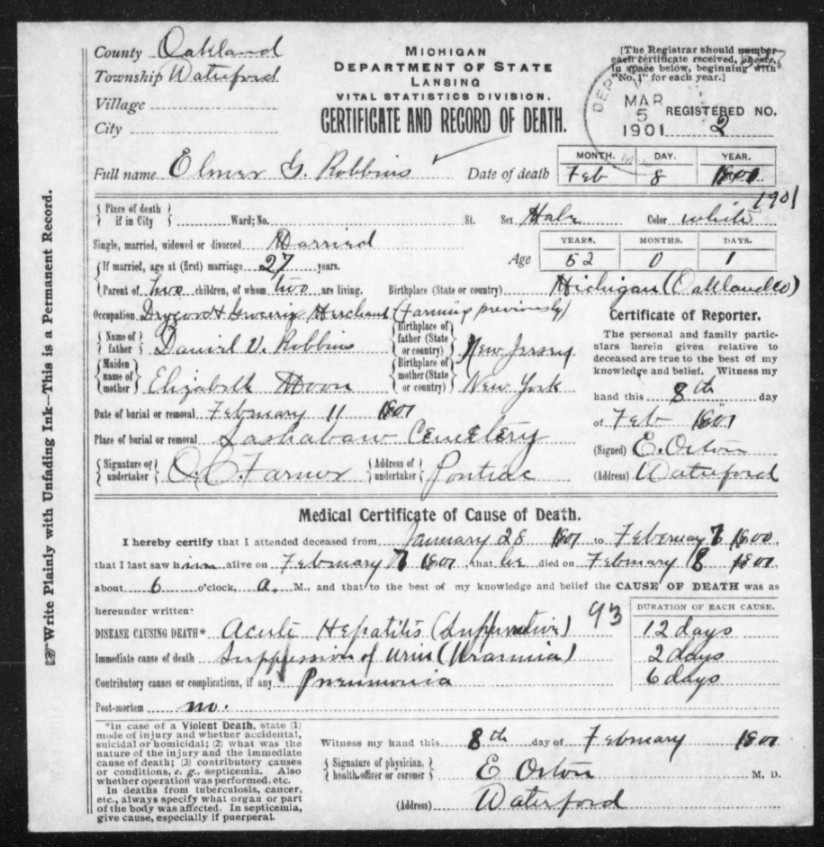 County Oakland
Township Waterford
Village
City
MICHIGAN
DEPARTMENT OF STATE
LANSING
VITAL STATISTICS DIVISION.
CERTIFICATE AND RECORD OF DEATH.
[The Registrar should number
each certificate received,
in space below, beginning with
"No. 1" for each year.]
MAR
5
1901
REGISTERED NO. 2
Full name Elmer G. Robbins Date of death
MONTH. DAY. YEAR.
Feb 8 1901
Place of death if in City Ward; No. St. Sex Male Color white
Single, married, widowed or divorced Married
If married, age at (first) marriage 27 years.
Age
YEARS. MONTHS. DAYS.
52 0 1
Parent of two children, of whom two are living. Birthplace (State or country) Michigan (Oakland Co)
Occupation Drygood & Grocery Merchant (farming previously)
Name of father Daniel V. Robbins Birthplace of father (State or country) New Jersey
Maiden name of mother Elizabeth Moon Birthplace of mother (State or country) New York
Date of burial or removal February 11
Place of burial or removal Sashabaw Cemetery
Signature of undertaker O. C. Farmer Address of undertaker Pontiac
Certificate of Reporter.
The personal and family partic-
ulars herein given relative to
deceased are true to the best of my
knowledge and belief. Witness my
hand this 8th day
of Feb 1901
(Signed) E. Orton
(Address) Waterford
Medical Certificate of Cause of Death.
I hereby certify that I attended deceased from January 28 1901 to February 7 1900
that I last saw him alive on February 7 1901 that he died on February 8 1901
about 6 o'clock, a. M., and that to the best of my knowledge and belief the CAUSE OF DEATH was as
hereunder written:
93
DURATION OF EACH CAUSE.
DISEASE CAUSING DEATH* Acute Hepatitis (Suppurative) 12 days
Immediate cause of death Suppression of Urine (Uraemia) 2 days
Contributory causes or complications, if any Pneumonia 6 days
Post-mortem no.
*In case of a Violent Death, state (1)
mode of injury and whether accidental,
suicidal or homicidal; (2) what was the
nature of the injury and the immediate
cause of death; (3) contributory causes
or conditions, e. g., septicemia. Also
whether operation was performed, etc.
In deaths from tuberculosis, cancer,
etc., always specify what organ or part
of the body was affected. In septicemia,
give cause, especially if puerperal.
Witness my hand this 8th day of February 1901
Signature of physician, health officer or coroner E Orton M. D.
(Address) Waterford
Write Plainly with Unfading Ink—This is a Permanent Record.